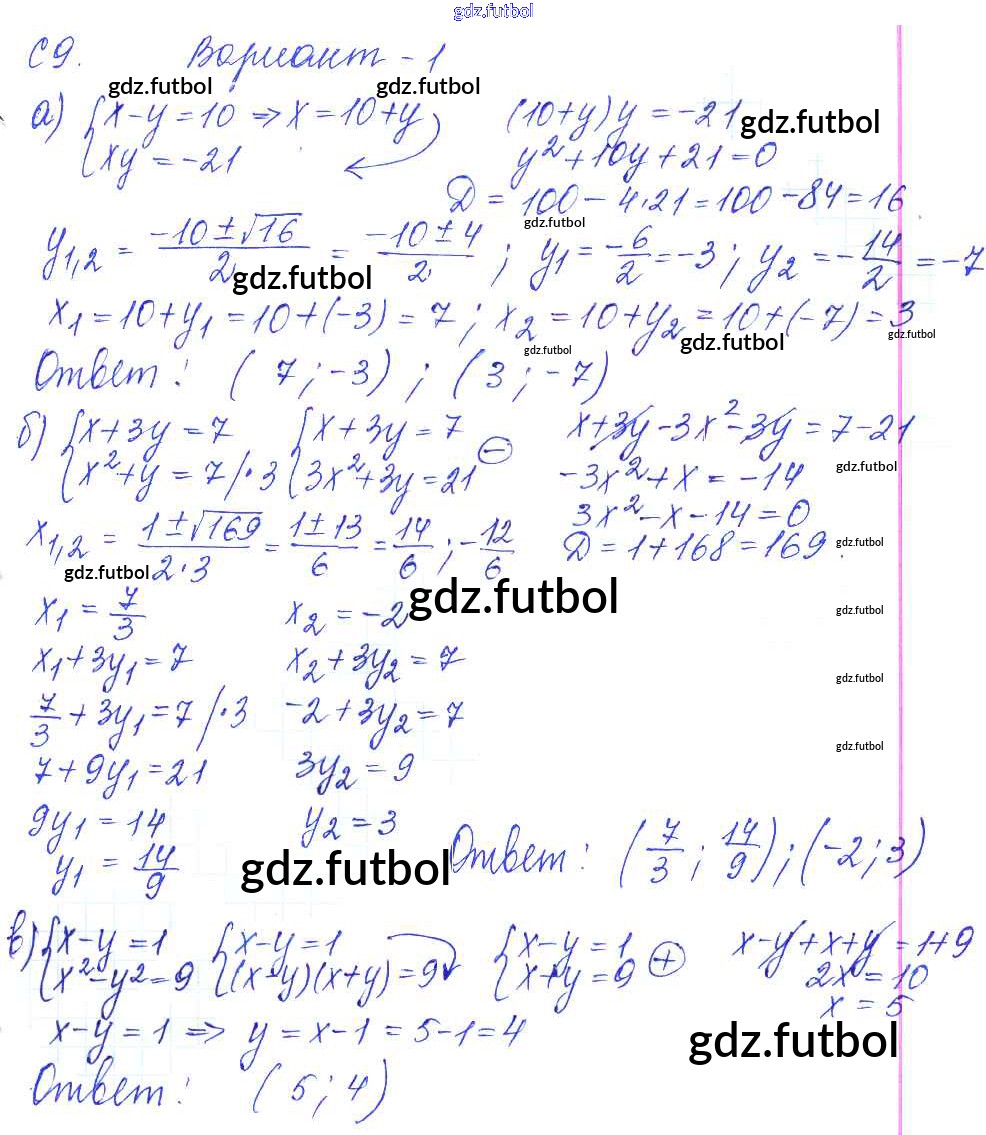 gdz.futbol
С 9. Вариант - 1
gdz.futbol gdz.futbol
а) { x - y = 10 => x = 10 + y (10 + y) y = -21
gdz.futbol
{ xy = -21 y² + 10y + 21 = 0
Д = 100 - 4·21 = 100 - 84 = 16
gdz.futbol
y₁,₂ = (-10 ± √16)/2 = (-10 ± 4)/2 ; y₁ = -6/2 = -3 ; y₂ = -14/2 = -7
gdz.futbol
x₁ = 10 + y₁ = 10 + (-3) = 7 ; x₂ = 10 + y₂ = 10 + (-7) = 3
gdz.futbol gdz.futbol gdz.futbol
Ответ : ( 7 ; -3) ; ( 3 ; -7)
б) { x + 3y = 7 { x + 3y = 7 x + 3y - 3x² - 3y = 7 - 21
{ x² + y = 7 /·3 { 3x² + 3y = 21 (-) -3x² + x = -14
gdz.futbol
3x² - x - 14 = 0
x₁,₂ = (1 ± √169)/(2·3) = (1 ± 13)/6 = 14/6 ; -12/6 Д = 1 + 168 = 169.
gdz.futbol
gdz.futbol gdz.futbol
x₁ = 7/3 x₂ = -2
gdz.futbol
x₁ + 3y₁ = 7 x₂ + 3y₂ = 7
gdz.futbol
7/3 + 3y₁ = 7 /·3 -2 + 3y₂ = 7
gdz.futbol
7 + 9y₁ = 21 3y₂ = 9
9y₁ = 14 y₂ = 3
y₁ = 14/9 Ответ : (7/3 ; 14/9) ; (-2 ; 3)
gdz.futbol
в) { x - y = 1 { x - y = 1 { x - y = 1 x - y + x + y = 1 + 9
{ x² - y² = 9 { (x - y)(x + y) = 9 { x + y = 9 (+) 2x = 10
x = 5
x - y = 1 => y = x - 1 = 5 - 1 = 4
gdz.futbol
Ответ : ( 5 ; 4)